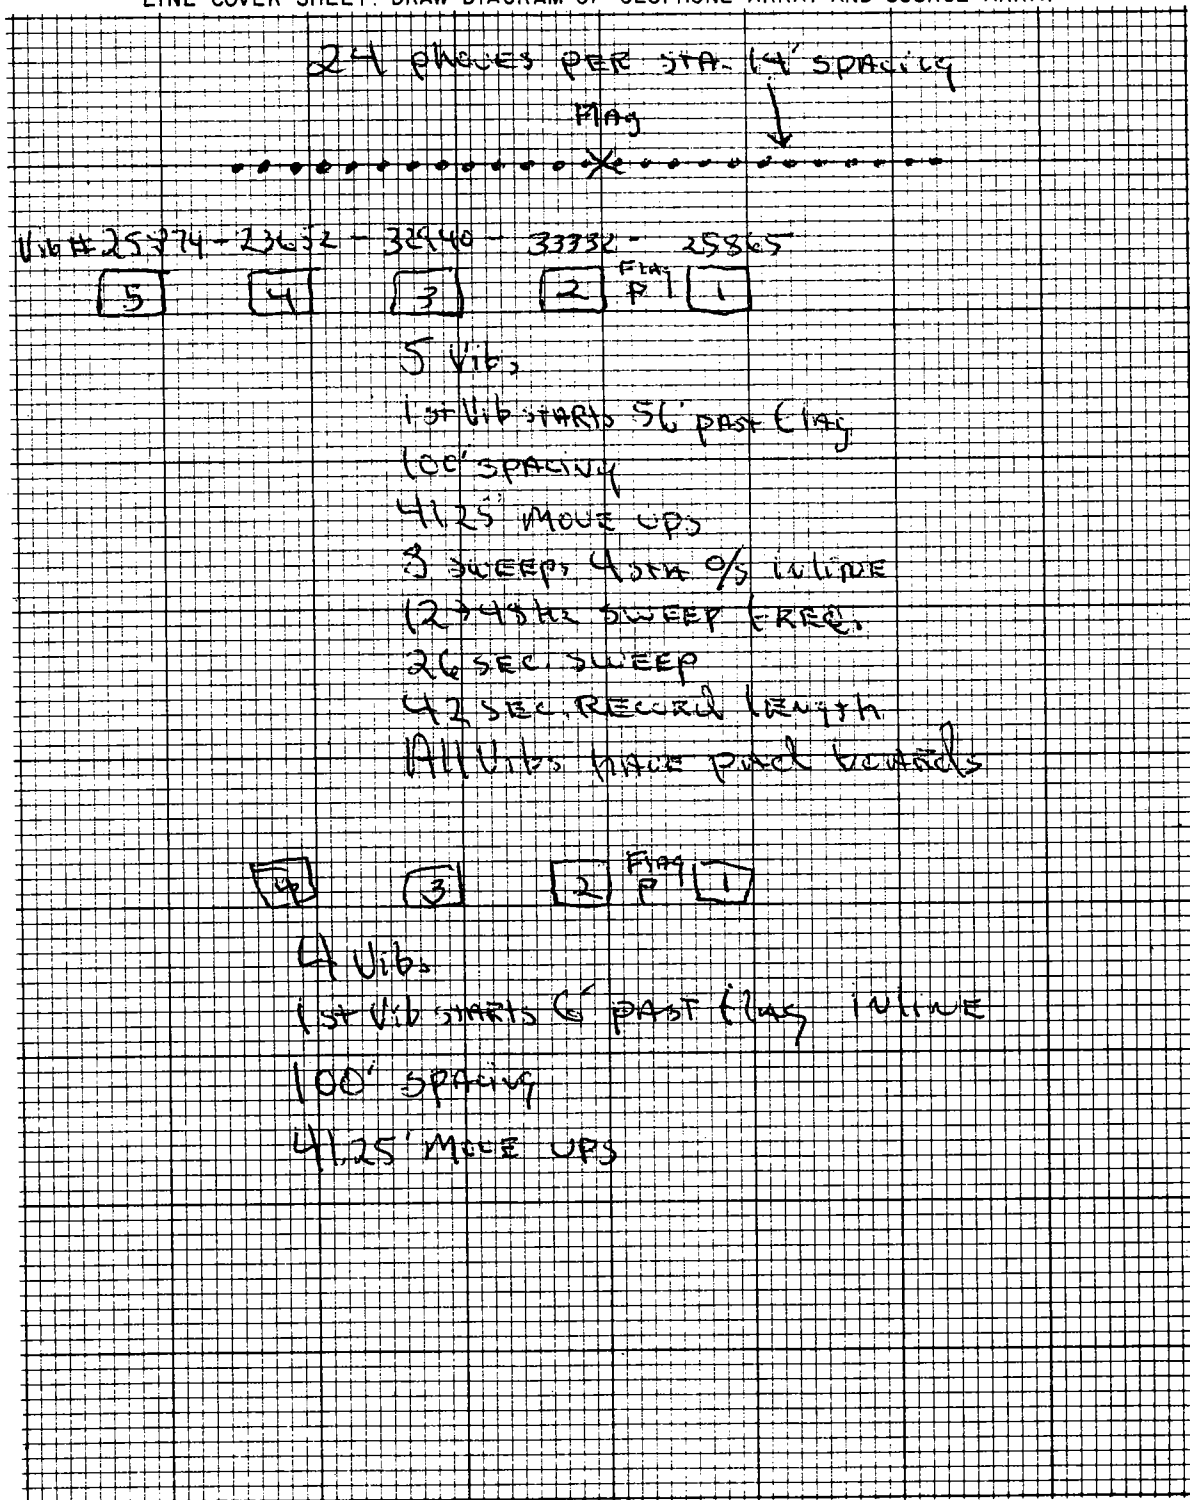 LINE COVER SHEET: DRAW DIAGRAM OF GEOPHONE ARRAY AND SOURCE ARRAY
24 phones PER STA. 14' SPACING
Flag
Vib # - - 32940 - 33332 - 25865
5 4 3 2 Flag P 1
5 Vibs
1st Vib STARTS 56' past flag
100' SPACING
41.25' MOVE UPS
8 SWEEPS 4 STA O/S INLINE
12 → 48 Hz SWEEP FREQ.
26 SEC. SWEEP
42 SEC. RECORD LENGTH
All Vibs HAVE pad boards
4 3 2 Flag P 1
4 Vibs
1st Vib STARTS 6' PAST flag INLINE
100' SPACING
41.25' MOVE UPS